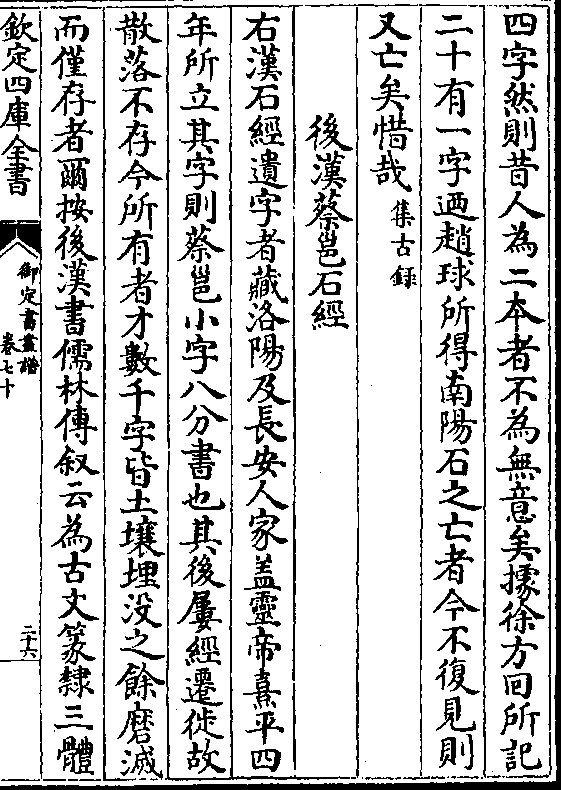 四字然則昔人為二本者不為無意矣據徐方回所記
二十有一字迺趙球所得南陽石之亡者今不復見則
又亡矣惜哉集古録
後漢蔡邕石經
右漢石經遺字者藏洛陽及長安人家盖靈帝熹平四
年所立其字則蔡邕小字八分書也其後屢經遷徙故
散落不存今所有者才數千字皆土壤埋没之餘磨滅
而僅存者爾按後漢書儒林傳叙云為古文篆隸三體
欽定四庫全書
御定書畫譜
卷七十
二十六